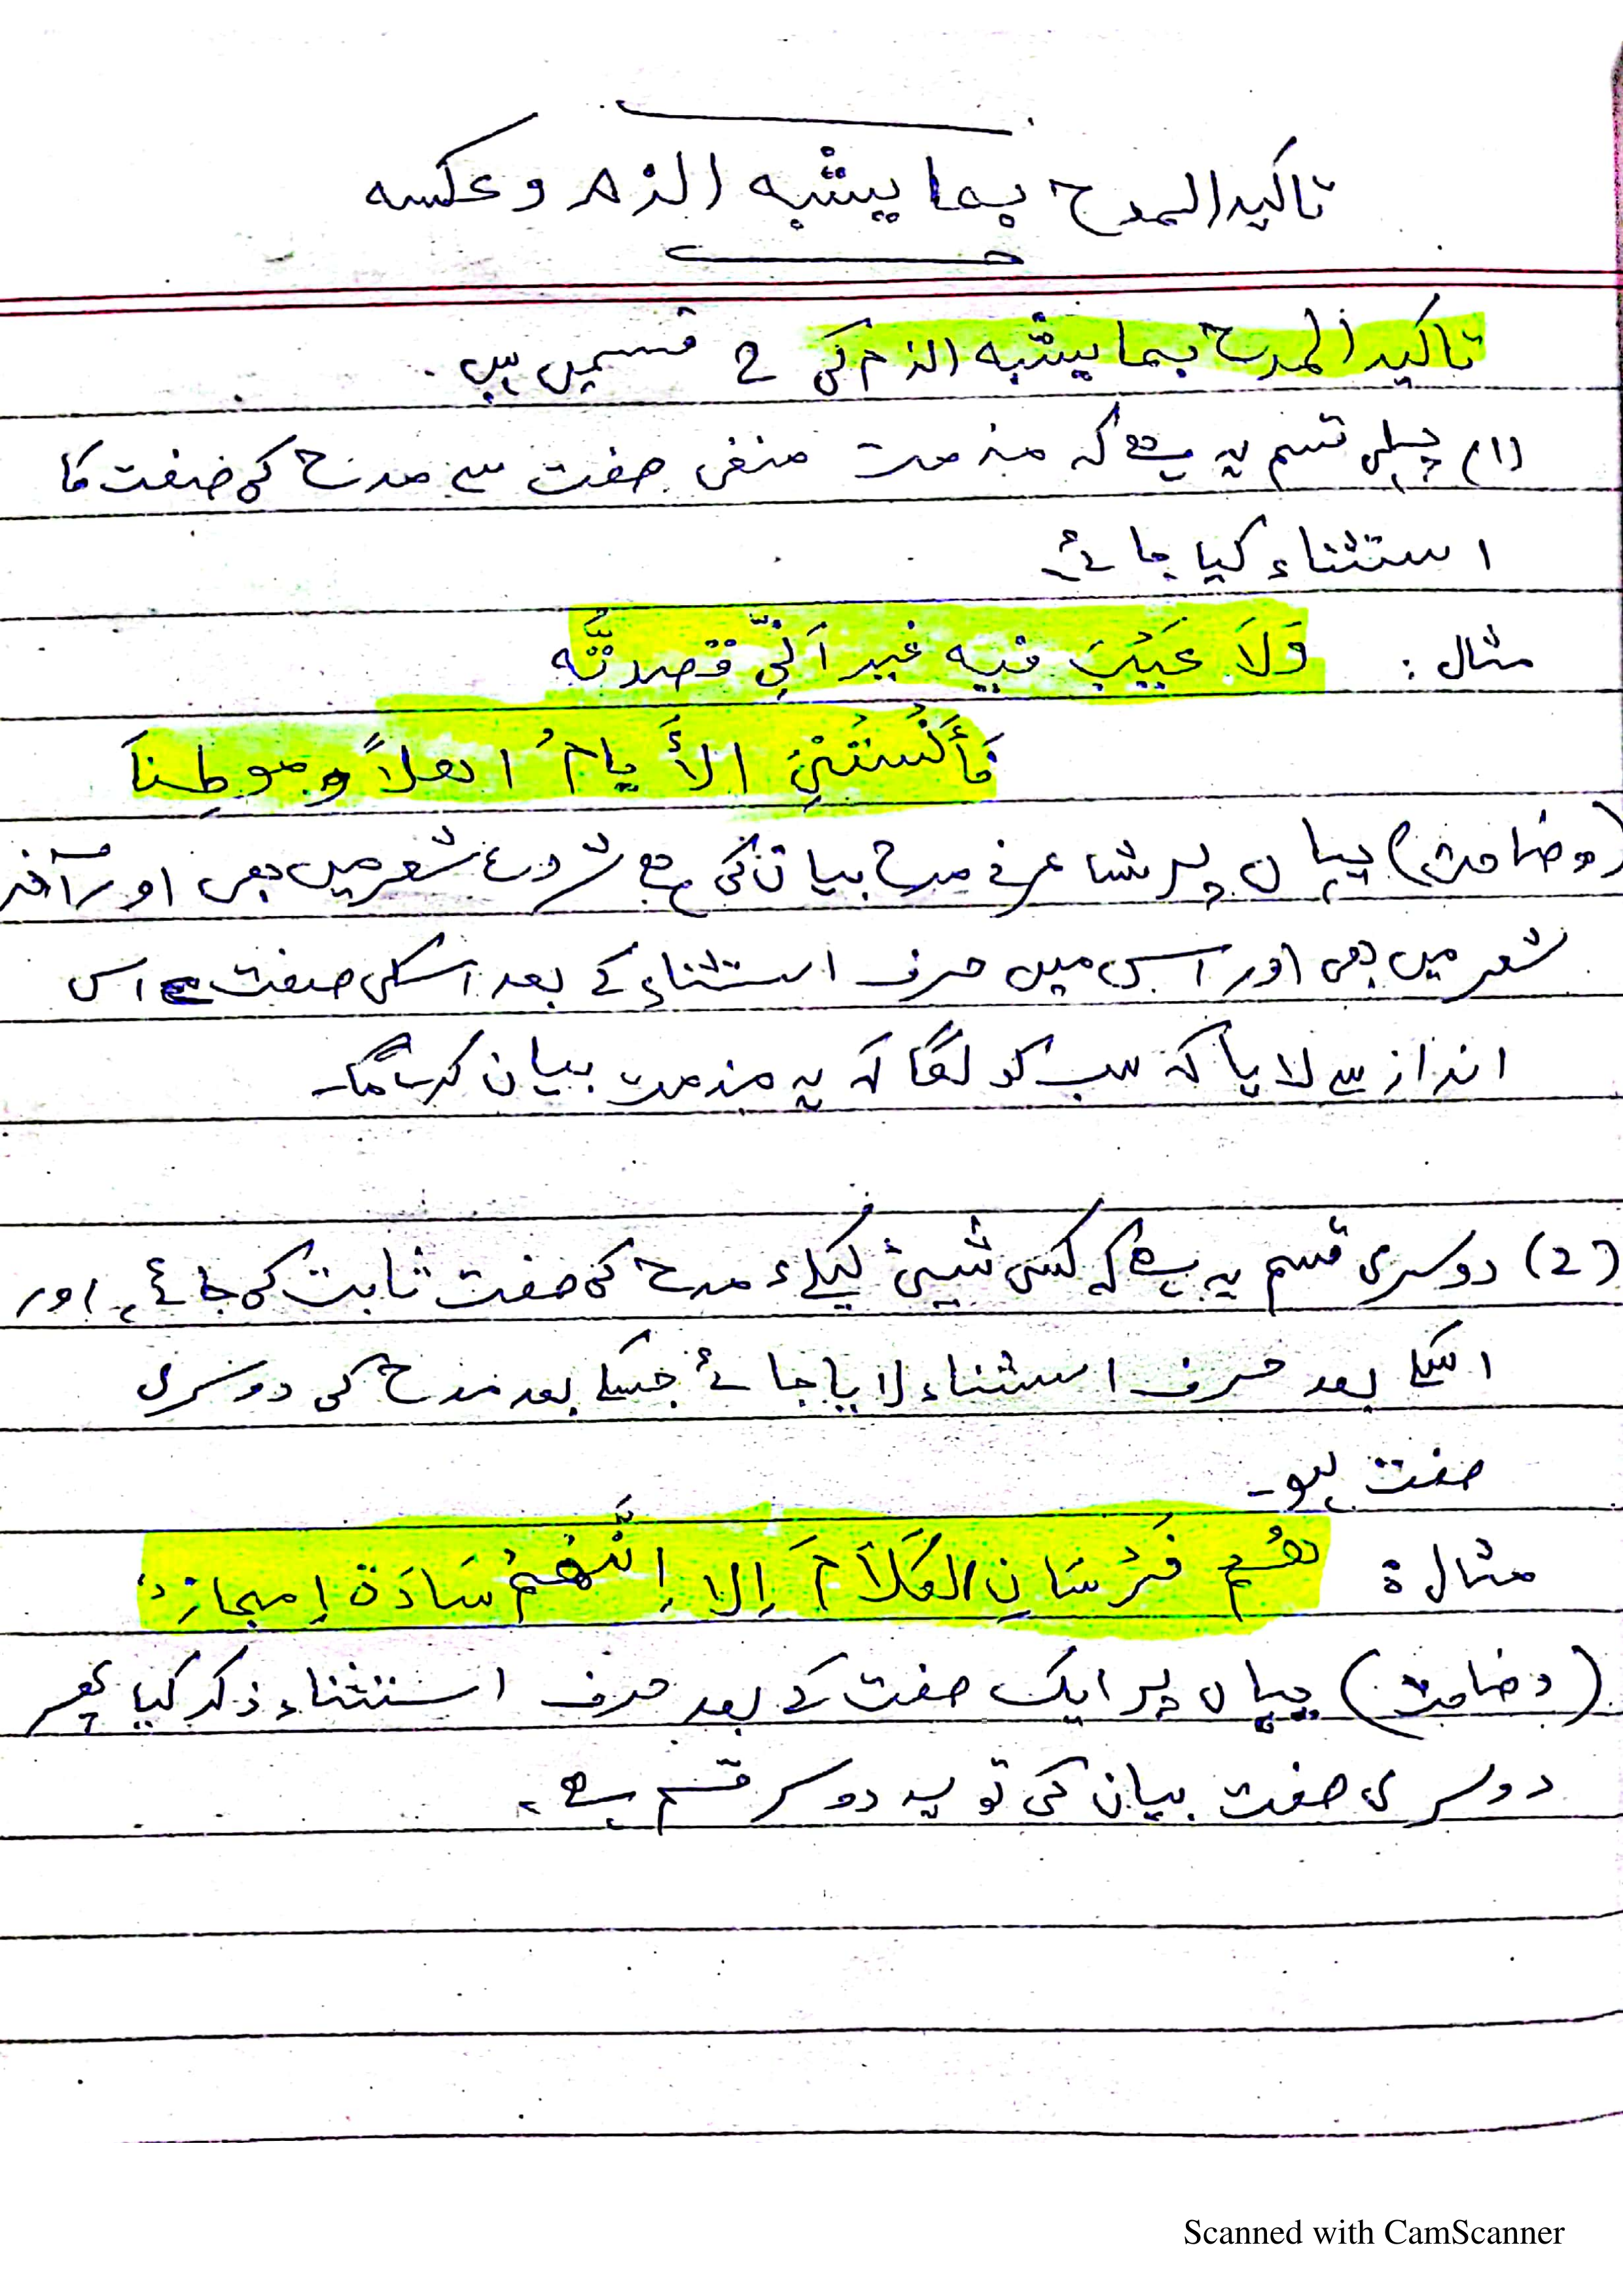 تاکید المدح بما یشبہ الذم وعکسہ
تاکید المدح بما یشبہ الذم کی 2 قسمیں ہیں۔
(1) پہلی قسم یہ ہے کہ مذمت منفی صفت سے مدح کی صفت کا
استثناء کیا جائے۔
مثال : وَلاَ عَيْبَ فيه غير اَنِّي قصدتَّه
فَأَنْسَتْنِيَ الأَيامُ اهلاً و موطِناَ
(وضاحت) یہاں پر شاعر نے مدح بیان کی ہے شروع شعر میں بھی اور آخر
شعر میں بھی اور اس میں حرف استثناء کے بعد اسکی صفت اس
انداز سے لایا کہ سب کو لگا کہ یہ مذمت بیان کرے گا۔
(2) دوسری قسم یہ ہے کہ کسی شیئ کیلئے مدح کی صفت ثابت کی جائے، اور
اسکے بعد حرف استثناء لایا جائے جسکے بعد مدح کی دوسری
صفت ہو۔
مثال : هُم فُرْسَانِ الكَلاَمَ اِلا اِنَّهُمْ سَادَة امجاز
(وضاحت) یہاں پر ایک صفت کے بعد حرف استثناء ذکر کیا پھر
دوسری صفت بیان کی تو یہ دوسر قسم ہے۔
Scanned with CamScanner